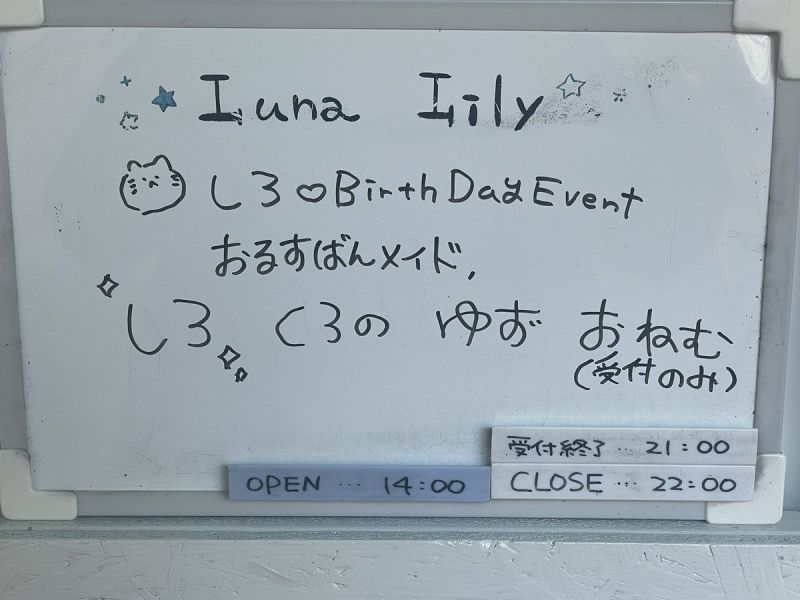 Luna Lily
しろ♡BirthDayEvent
おるすばんメイド,
しろ くろの ゆず おねむ
(受付のみ)
受付終了…21:00
OPEN…14:00 CLOSE…22:00